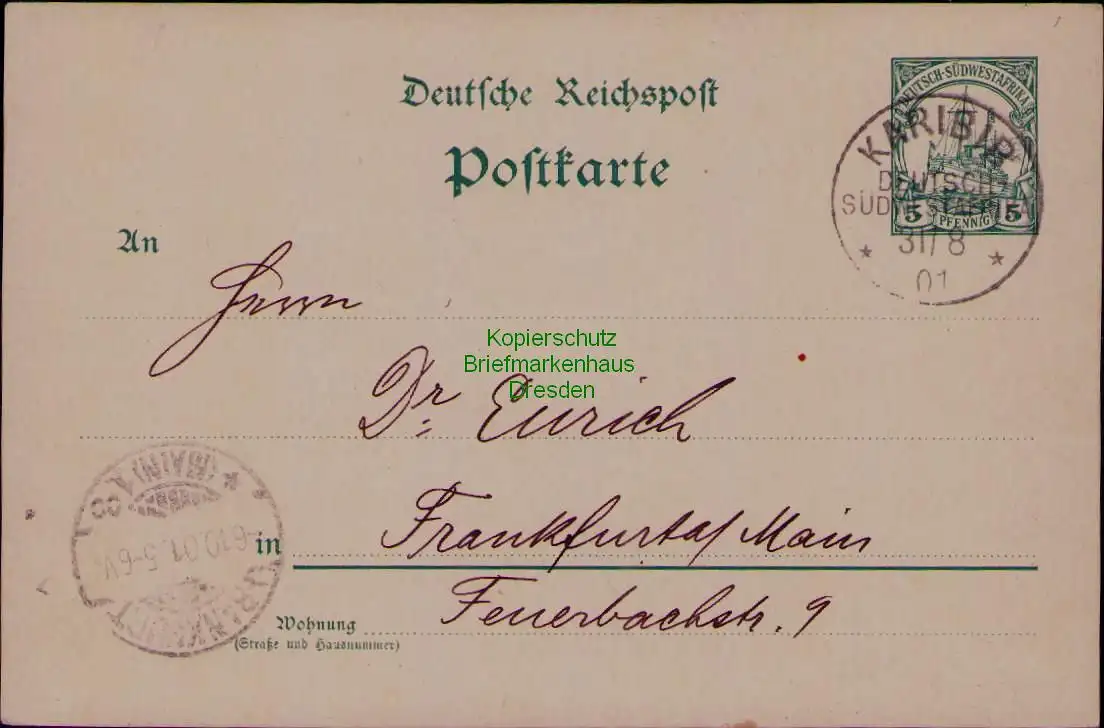 Deutsche Reichspost
Postkarte
DEUTSCH-SÜDWESTAFRIKA
5 PFENNIG 5
KARIBIB
DEUTSCH-
SÜDWESTAFRIKA
31/8
01
An
Herrn
Kopierschutz
Briefmarkenhaus
Dresden
Dr. Eurich
in Frankfurt a/ Main
Wohnung Feuerbachstr. 9
(Straße und Hausnummer)
FRANKFURT
(MAIN)
6.10.01. 5-6V